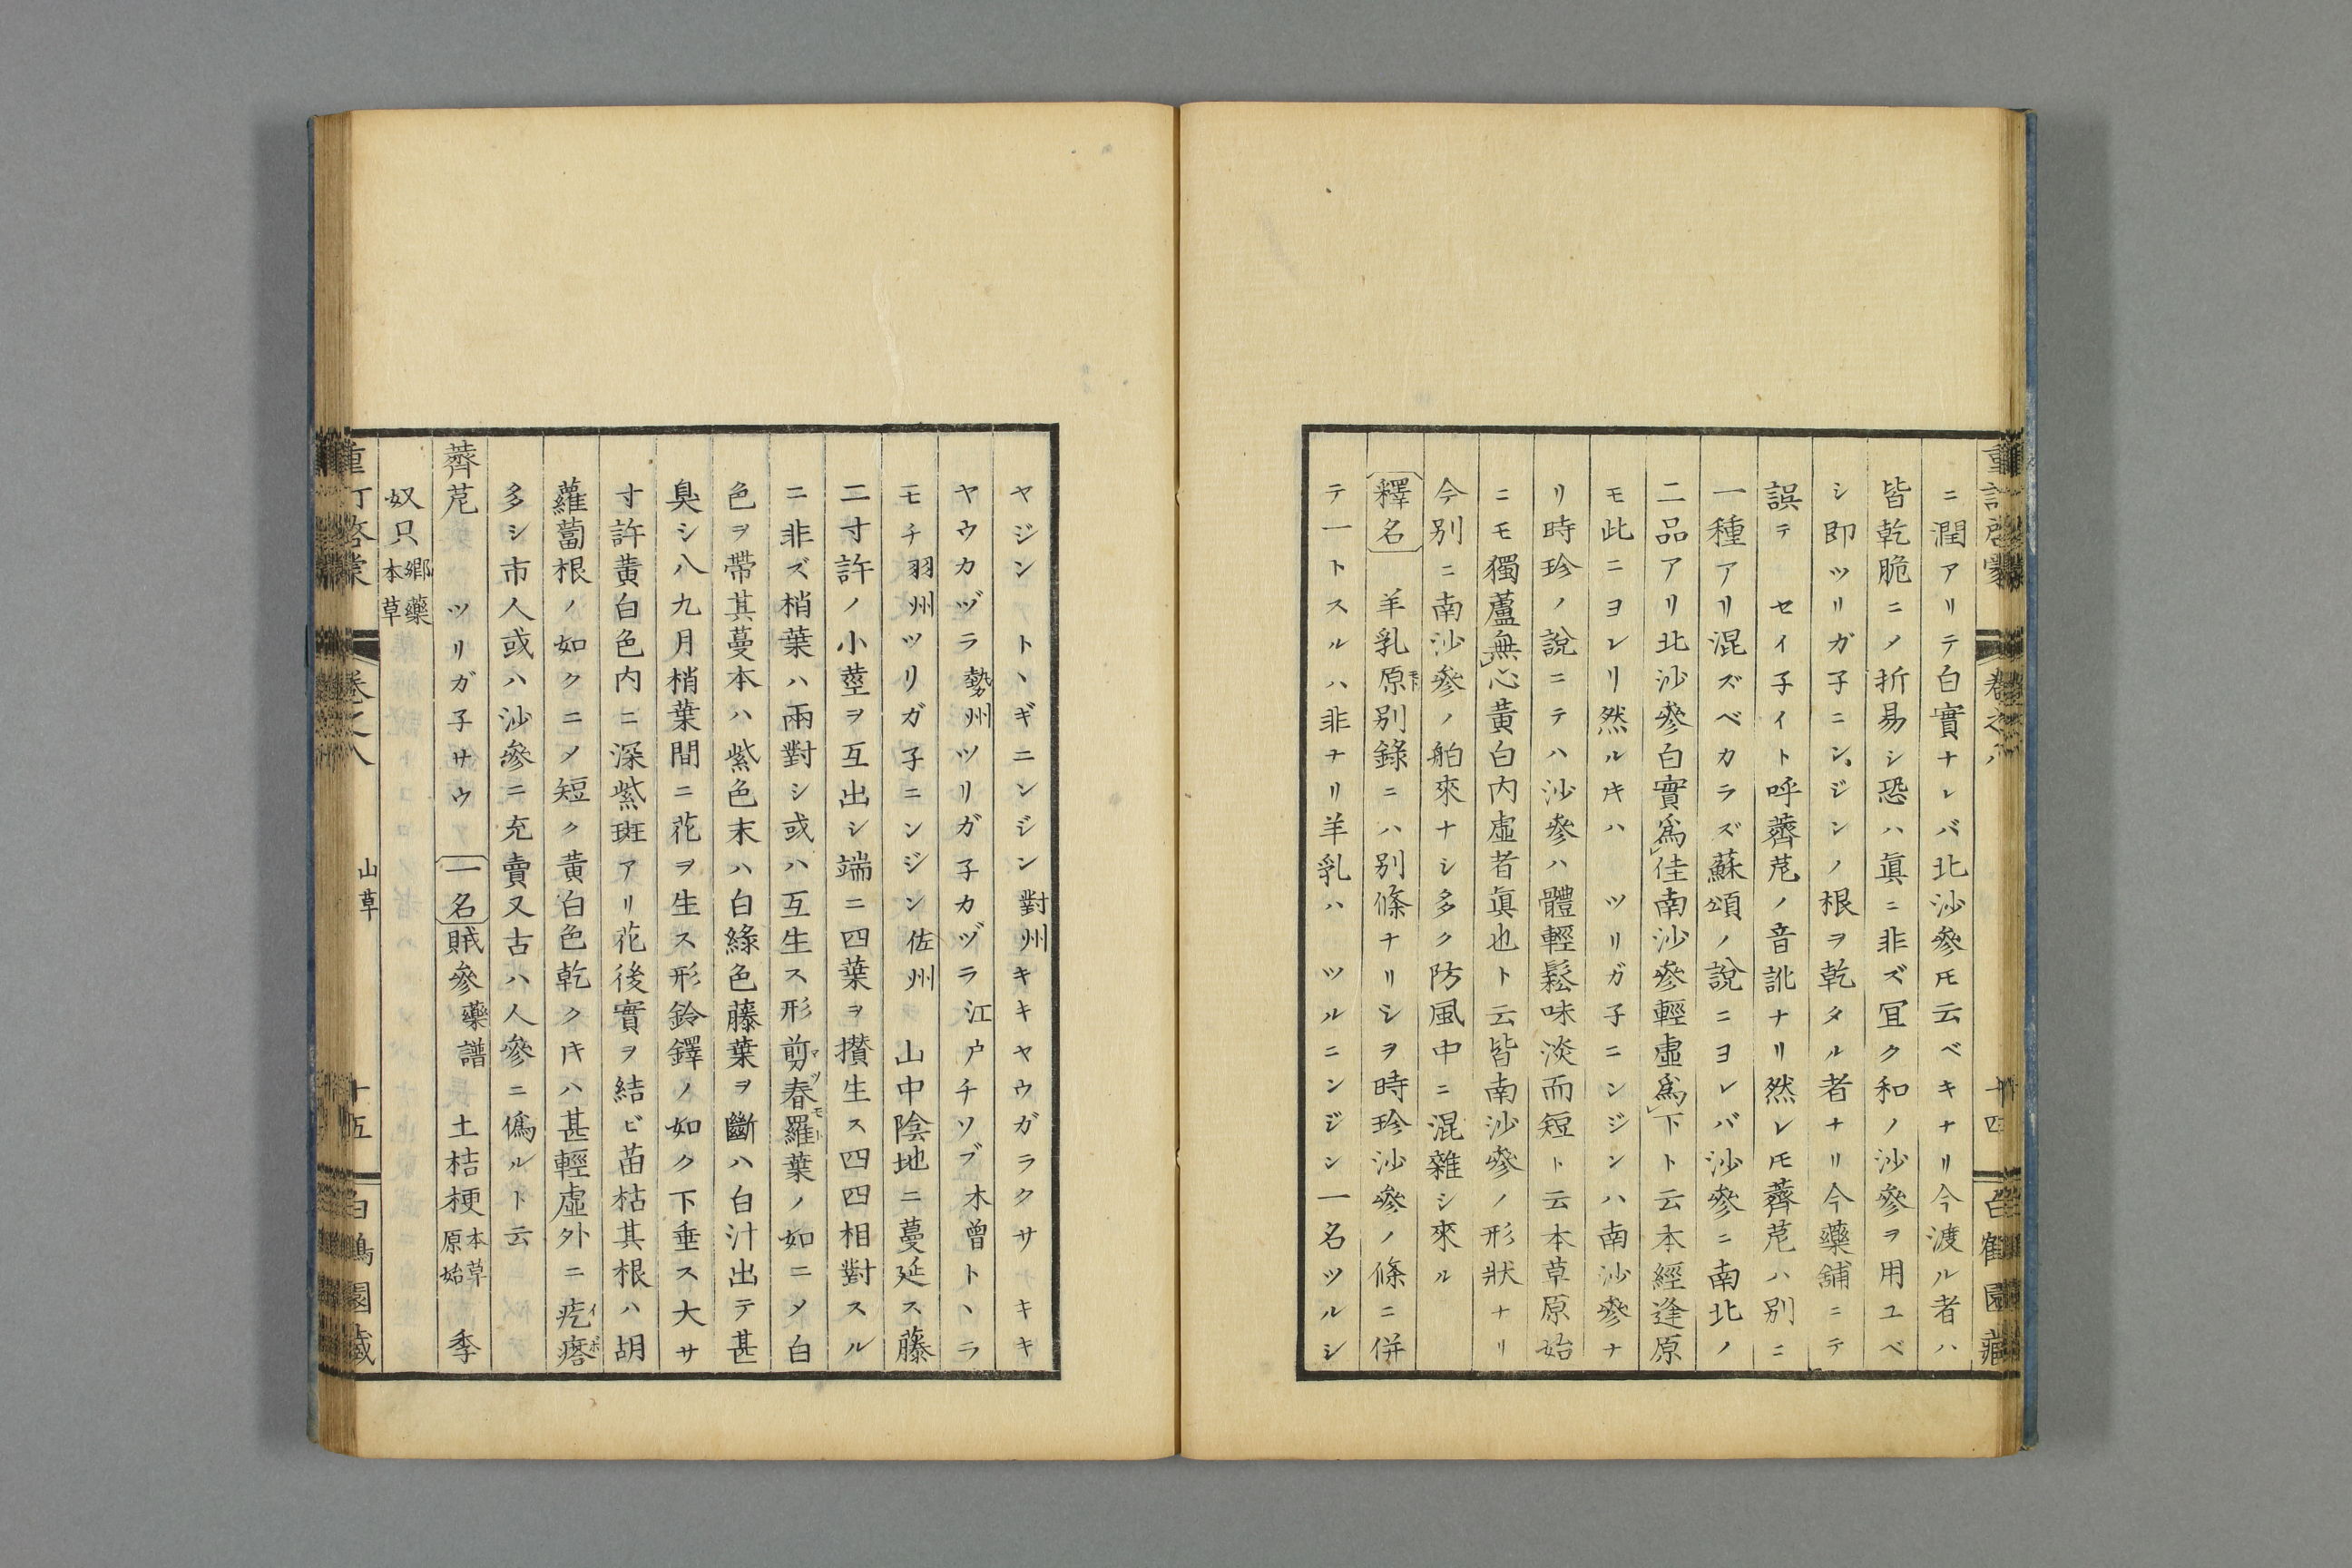 ニ潤アリテ白實ナレバ北沙參トモ云ベキナリ今渡ル者ハ
皆乾脆ニ〆折易シ恐ハ眞ニ非ズ冝ク和ノ沙參ヲ用ユベ
シ即ツリガ子ニンジンノ根ヲ乾タル者ナリ今藥舖ニテ
誤テ セイ子イト呼薺苨ノ音訛ナリ然レ𪜈薺苨ハ別ニ
一種アリ混ズベカラズ蘇頌ノ說ニヨレバ沙參ニ南北ノ
二品アリ北沙參白實爲佳南沙參輕虛爲下ト云本經逢原
モ此ニヨレリ然ルキハ ツリガ子ニンジンハ南沙參ナ
リ時珍ノ說ニテハ沙參ハ體輕鬆味淡而短ト云本草原始
ニモ獨蘆無心黃白內虛者眞也ト云皆南沙參ノ形狀ナリ
今別ニ南沙參ノ舶來ナシ多ク防風中ニ混雜シ來ル
釋名 羊乳原ト別錄ニハ別條ナリシヲ時珍沙參ノ條ニ併
テ一トスルハ非ナリ羊乳ハ ツルニンジン一名ツルシ
ヤジン トヽギニンジン 對州 キキヤウガラクサ キキ
ヤウカヅラ 勢州 ツリガ子カヅラ 江戸 チソブ 木曾 トヽラ
モチ 羽州 ツリガ子ニンジン 佐州 山中陰地ニ蔓延ス藤
二寸許ノ小莖ヲ互出シ端ニ四葉ヲ攅生ス四四相對スル
ニ非ズ梢葉ハ兩對シ或ハ互生ス形剪春羅マツモト葉ノ如ニ〆白
色ヲ帶其蔓本ハ紫色末ハ白綠色藤葉ヲ斷ハ白汁出テ甚
臭シ八九月梢葉間ニ花ヲ生ス形鈴鐸ノ如ク下垂ス大サ
寸許黃白色內ニ深紫斑アリ花後實ヲ結ビ苗枯其根ハ胡
蘿蔔根ノ如クニ〆短ク黃白色乾クキハ甚輕虛外ニ疙瘩イボ
多シ市人或ハ沙參ニ充賣又古ハ人參ニ僞ルト云
薺苨 ツリガ子サウ 一名賊參 藥譜 土桔梗 本草原始 季
奴只 鄉藥本草
山草
十五